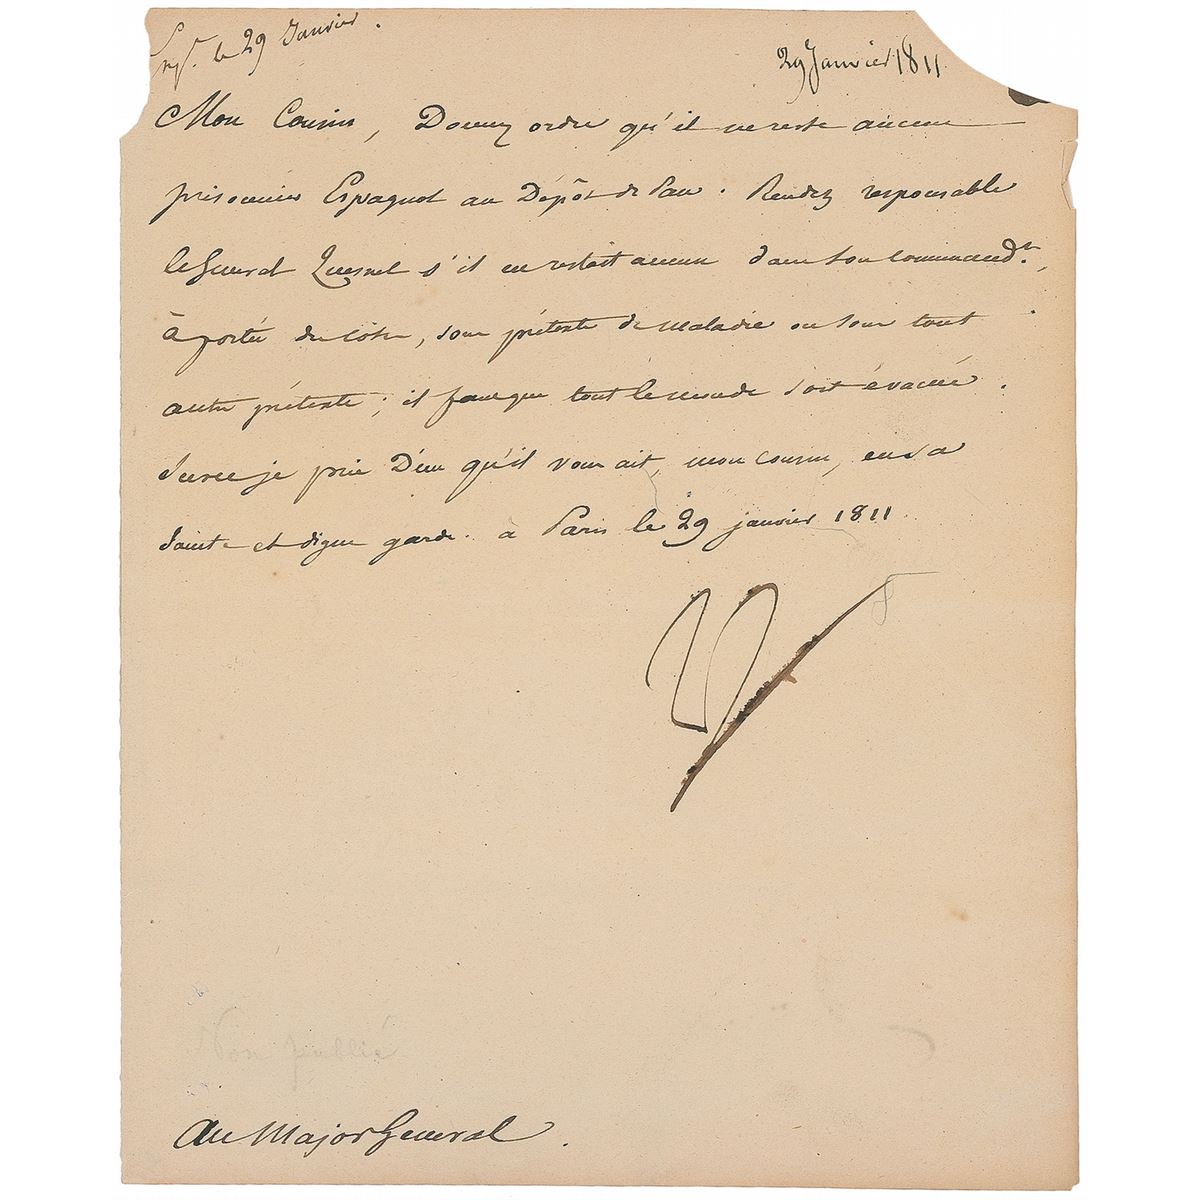 le 29 Janvier.
29 Janvier 1811
Mon Cousin, Donnez ordre qu'il ne reste aucun
prisonnier Espagnol au Dépôt de Pau. Rendez responsable
le Gneral Quesnel s'il en restait aucun dans son command.t,
à portée des côtes, sous prétexte de maladie ou sous tout
autre prétexte; il faut que tout le monde soit évacué.
Sur ce je prie Dieu qu'il vous ait, mon cousin, en sa
sainte et digne garde. à Paris le 29 janvier 1811.
Non publié
Au Major General.